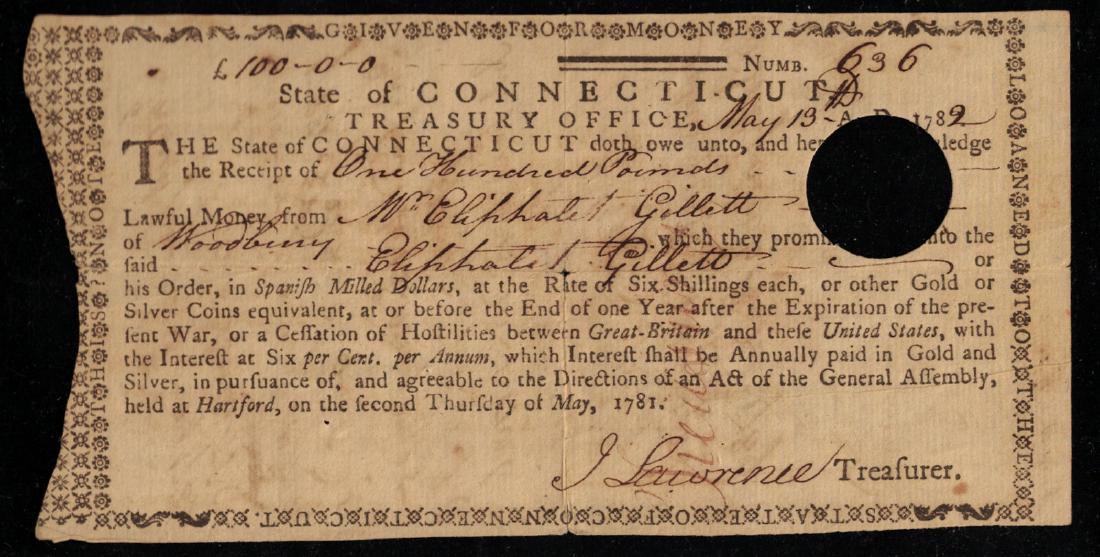 GIVEN FOR MONEY
LOANED TO THE
STATE OF CONNECTICUT
THIS NOTE
£ 100-0-0 NUMB. 636
State of CONNECTICUT
TREASURY OFFICE, May 13th A. D. 1782
THE State of CONNECTICUT doth owe unto, and ledge
the Receipt of One Hundred Pounds
Lawful Money from Mr Eliphalet Gillett
of Woodbury which they promi unto the
ſaid Eliphalet Gillett or
his Order, in Spaniſh Milled Dollars, at the Rate of Six Shillings each, or other Gold or
Silver Coins equivalent, at or before the End of one Year after the Expiration of the pre-
ſent War, or a Ceſſation of Hoſtilities between Great-Britain and theſe United States, with
the Intereſt at Six per Cent. per Annum, which Intereſt ſhall be Annually paid in Gold and
Silver, in purſuance of, and agreeable to the Directions of an Act of the General Aſſembly,
held at Hartford, on the ſecond Thurſday of May, 1781.
J Lawrence Treaſurer.